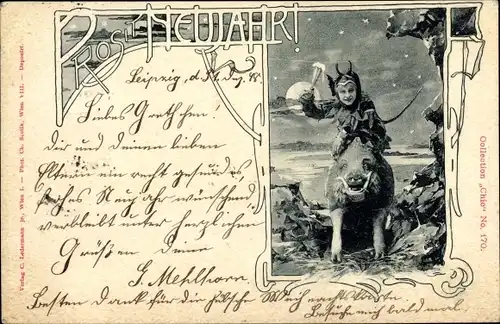 PROSIT NEUJAHR!
Leipzig, d. 31. Dez. 98.
Liebes Gretchen!
Dir und deinen lieben
Eltern ein recht gesundes,
frohes Neujahr wünschend
verbleibt unter herzlichen
Grüßen Deine
G. Mehlhorn.
Besten Dank für die hübsche Weihnachtskarte
Besuche mich bald mal.
Verlag C. Ledermann jr., Wien I. — Phot. Ch. Scolik, Wien VIII. — Deponirt.
Collection „Chic“ No. 170.